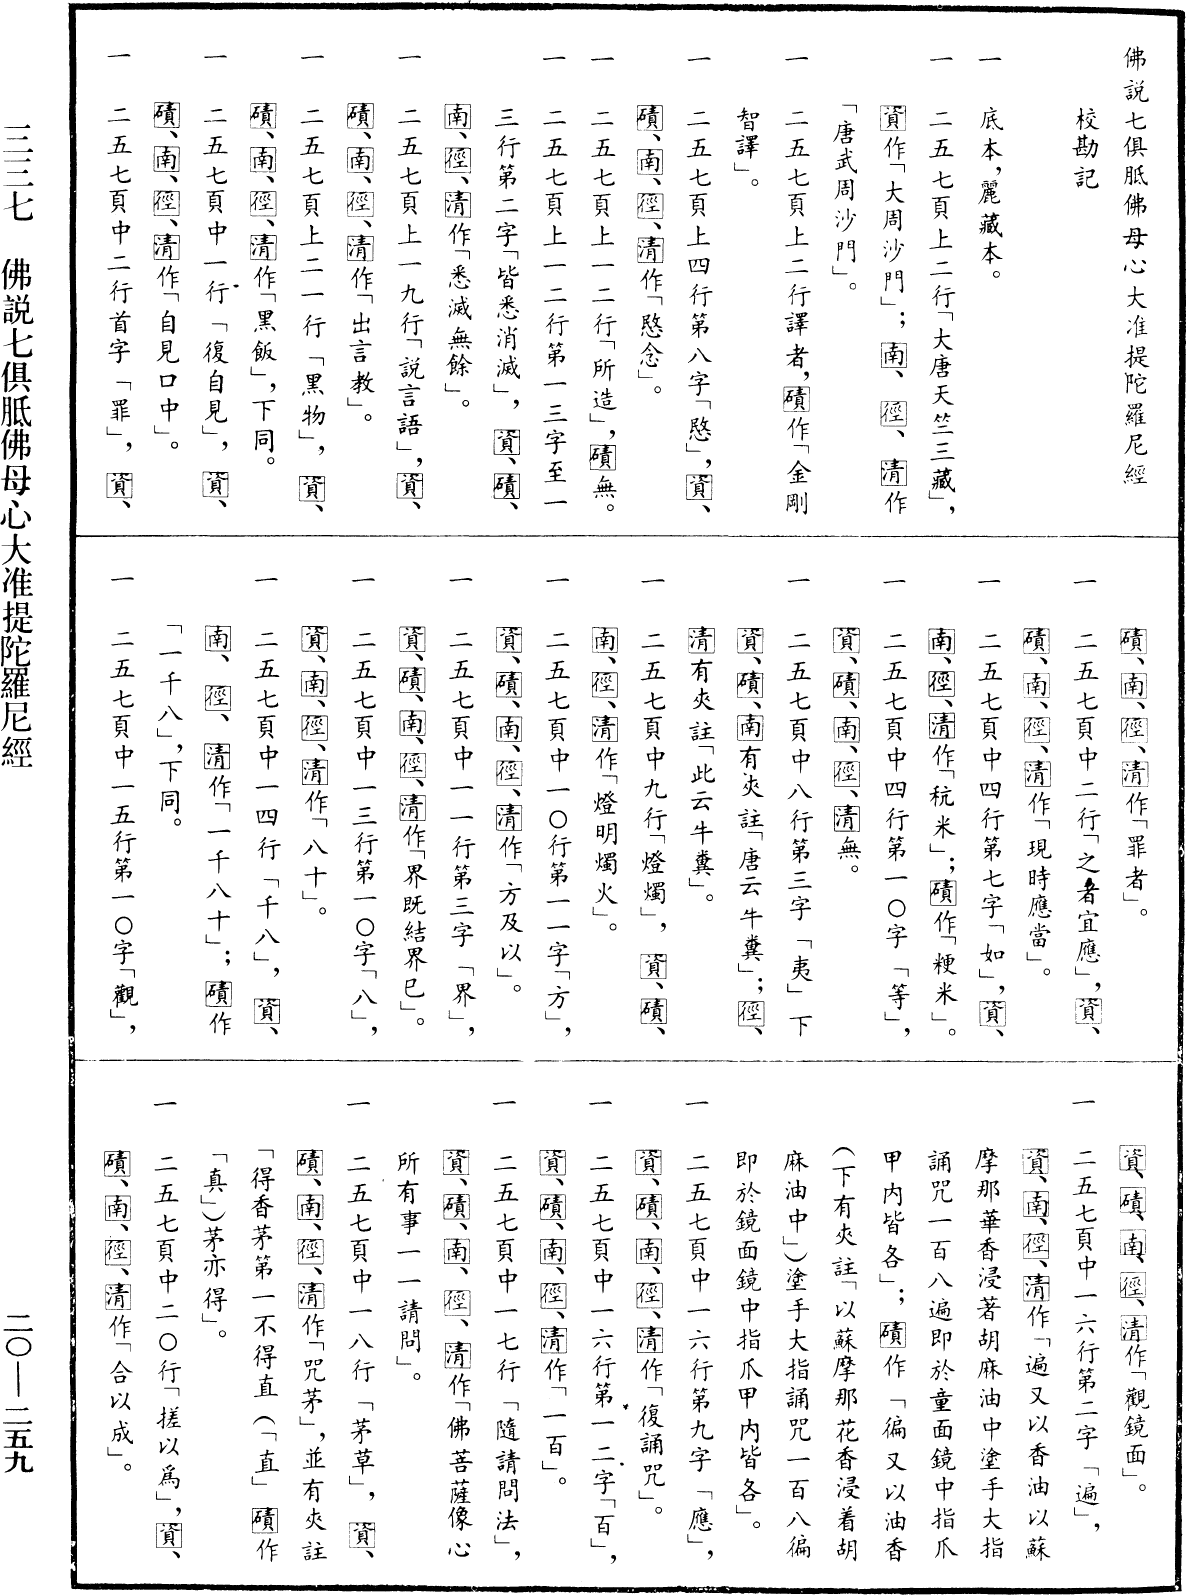 佛說七俱胝佛母心大准提陀羅尼經
校勘記
一 底本，麗藏本。
一 二五七頁上二行「大唐天竺三藏」，
資作「大周沙門」；南、徑、清作
「唐武周沙門」。
一 二五七頁上二行譯者，磧作「金剛
智譯」。
一 二五七頁上四行第八字「愍」，資、
磧、南、徑、清作「愍念」。
一 二五七頁上一二行「所造」，磧無。
一 二五七頁上一二行第一三字至一
三行第二字「皆悉消滅」，資、磧、
南、徑、清作「悉滅無餘」。
一 二五七頁上一九行「説言語」，資、
磧、南、徑、清作「出言教」。
一 二五七頁上二一行「黑物」，資、
磧、南、徑、清作「黑飯」，下同。
一 二五七頁中一行「復自見」，資、
磧、南、徑、清作「自見口中」。
一 二五七頁中二行首字「罪」，資、
磧、南、徑、清作「罪者」。
一 二五七頁中二行「之者宜應」，資、
磧、南、徑、清作「現時應當」。
一 二五七頁中四行第七字「如」，資、
南、徑、清作「秔米」；磧作「粳米」。
一 二五七頁中四行第一〇字「等」，
資、磧、南、徑、清無。
一 二五七頁中八行第三字「夷」下
資、磧、南有夾註「唐云牛糞」；徑、
清有夾註「此云牛糞」。
一 二五七頁中九行「燈燭」，資、磧、
南、徑、清作「燈明燭火」。
一 二五七頁中一〇行第一一字「方」，
資、磧、南、徑、清作「方及以」。
一 二五七頁中一一行第三字「界」，
資、磧、南、徑、清作「界既結界已」。
一 二五七頁中一三行第一〇字「八」，
資、南、徑、清作「八十」。
一 二五七頁中一四行「千八」，資、
南、徑、清作「一千八十」；磧作
「一千八」，下同。
一 二五七頁中一五行第一〇字「觀」，
資、磧、南、徑、清作「觀鏡面」。
一 二五七頁中一六行第二字「遍」，
資、南、徑、清作「遍又以香油以蘇
摩那華香浸著胡麻油中塗手大指
誦咒一百八遍即於童面鏡中指爪
甲内皆各」；磧作「徧又以油香
（下有夾註「以蘇摩那花香浸着胡
麻油中」）塗手大指誦咒一百八徧
即於鏡面鏡中指爪甲内皆各」。
一 二五七頁中一六行第九字「應」，
資、磧、南、徑、清作「復誦咒」。
一 二五七頁中一六行第一二字「百」，
資、磧、南、徑、清作「一百」。
一 二五七頁中一七行「隨請問法」，
資、磧、南、徑、清作「佛菩薩像心
所有事一一請問」。
一 二五七頁中一八行「茅草」，資、
磧、南、徑、清作「咒茅」，並有夾註
「得香茅第一不得直（「直」磧作
「真」）茅亦得」。
一 二五七頁中二〇行「搓以爲」，資、
磧、南、徑、清作「合以成」。
三三七 佛說七俱胝佛母心大准提陀羅尼經
二〇—二五九